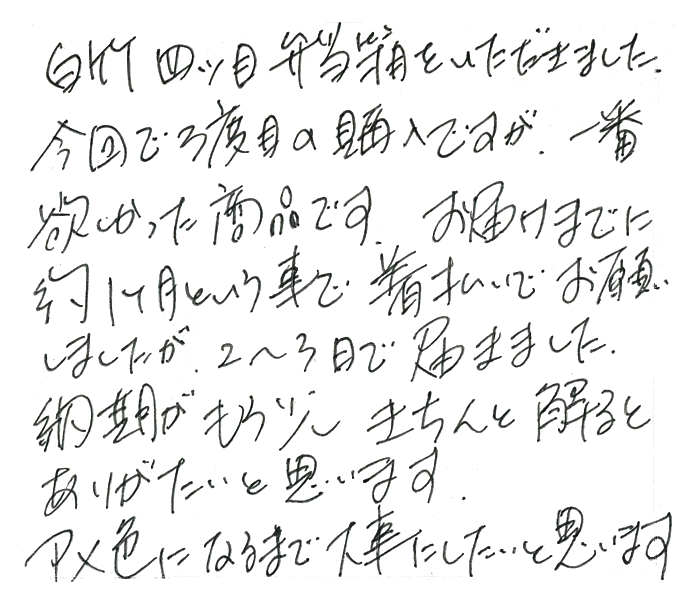 白竹四ッ目弁当箱をいただきました.
今回で3度目の購入ですが、一番
欲しかった商品です. お届けまでに
約1ヶ月という事で着払いでお願い
しましたが、2〜3日で届きました.
納期がもう少しきちんと解ると
ありがたいと思います.
アメ色になるまで大事にしたいと思います